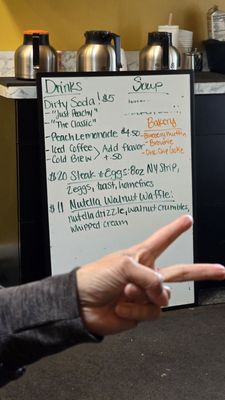 Drinks
Dirty Soda! $5
- "Just Peachy"
- "The Classic"
- Peach Lemonade $4.50
- Iced Coffee
- Cold Brew
Add flavor
+.50
Soup
Bakery
- Blueberry Muffin
- Brownie
- Choc. Chip Cookie
$20 Steak + Eggs: 8oz NY Strip,
2eggs, toast, homefries
$11 Nutella Walnut Waffle:
nutella drizzle, walnut crumbles,
whipped cream